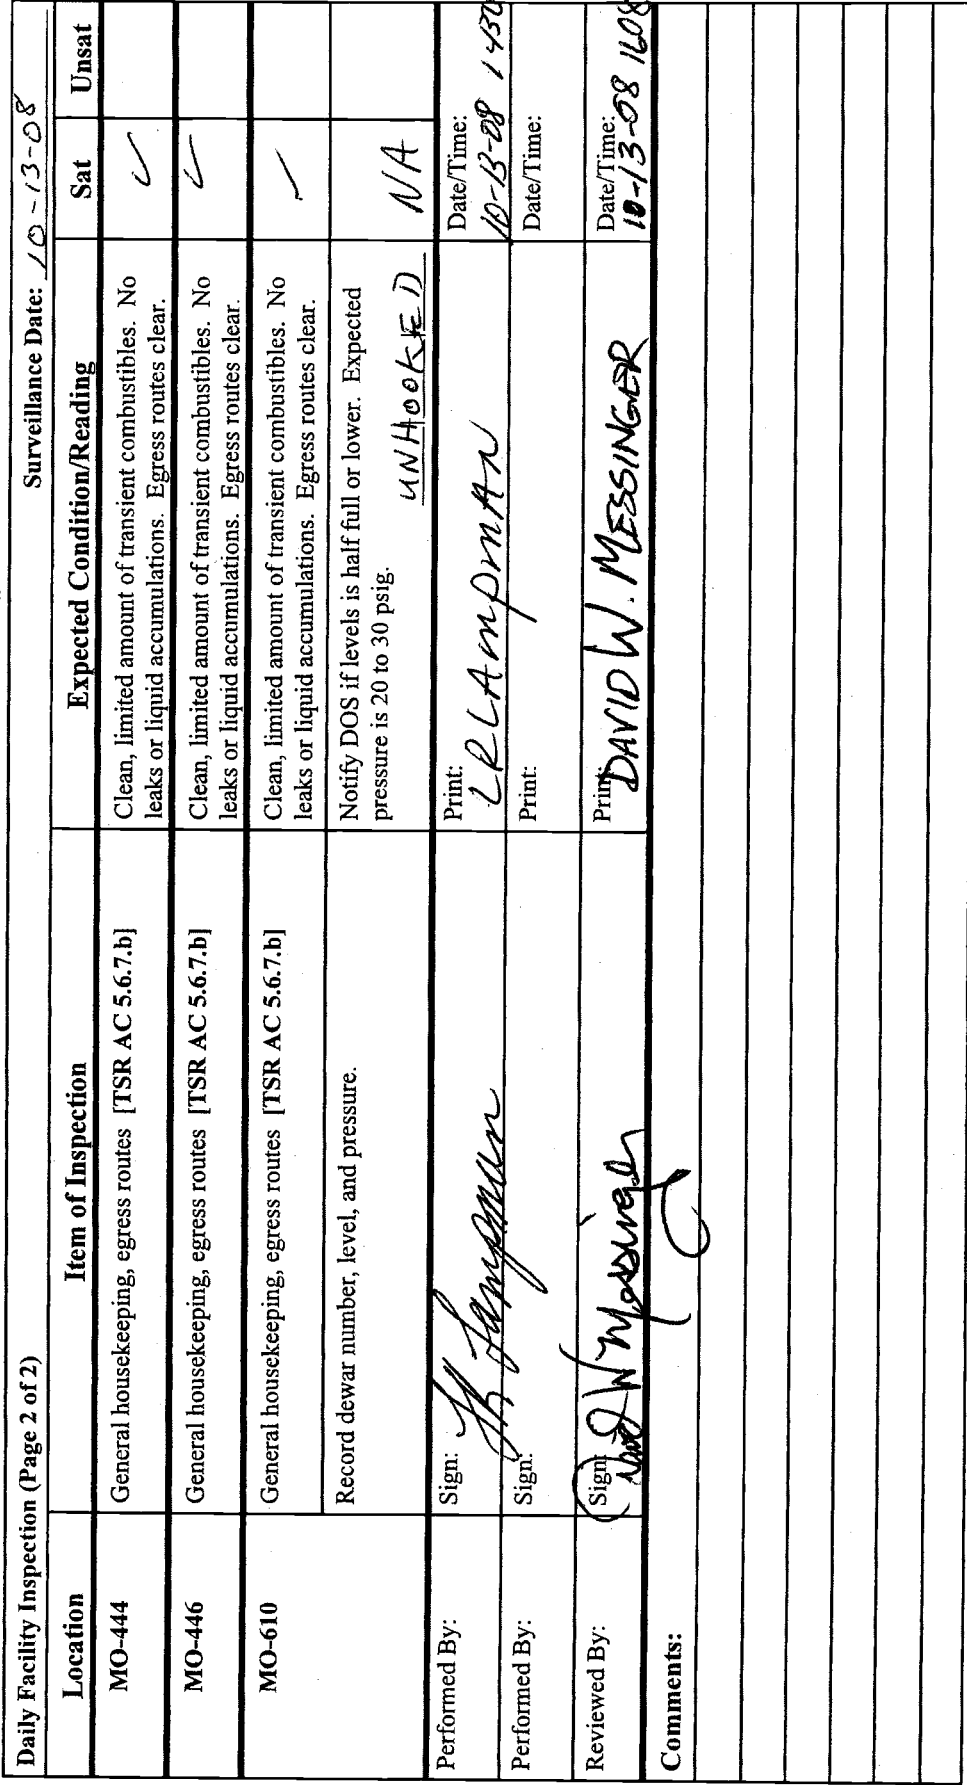 Daily Facility Inspection (Page 2 of 2) Surveillance Date: 10-13-08
Location Item of Inspection Expected Condition/Reading Sat Unsat
MO-444 General housekeeping, egress routes [TSR AC 5.6.7.b] Clean, limited amount of transient combustibles. No ✓
leaks or liquid accumulations. Egress routes clear.
MO-446 General housekeeping, egress routes [TSR AC 5.6.7.b] Clean, limited amount of transient combustibles. No ✓
leaks or liquid accumulations. Egress routes clear.
MO-610 General housekeeping, egress routes [TSR AC 5.6.7.b] Clean, limited amount of transient combustibles. No ✓
leaks or liquid accumulations. Egress routes clear.
Record dewar number, level, and pressure. Notify DOS if levels is half full or lower. Expected
pressure is 20 to 30 psig. UNHOOKED NA
Performed By: Sign: LR Lampman Print: LRLAmpmAn Date/Time: 10-13-08 1430
Performed By: Sign: Print: Date/Time:
Reviewed By: Sign: David W Messinger Print: DAVID W. MESSINGER Date/Time: 10-13-08 1608
Comments: